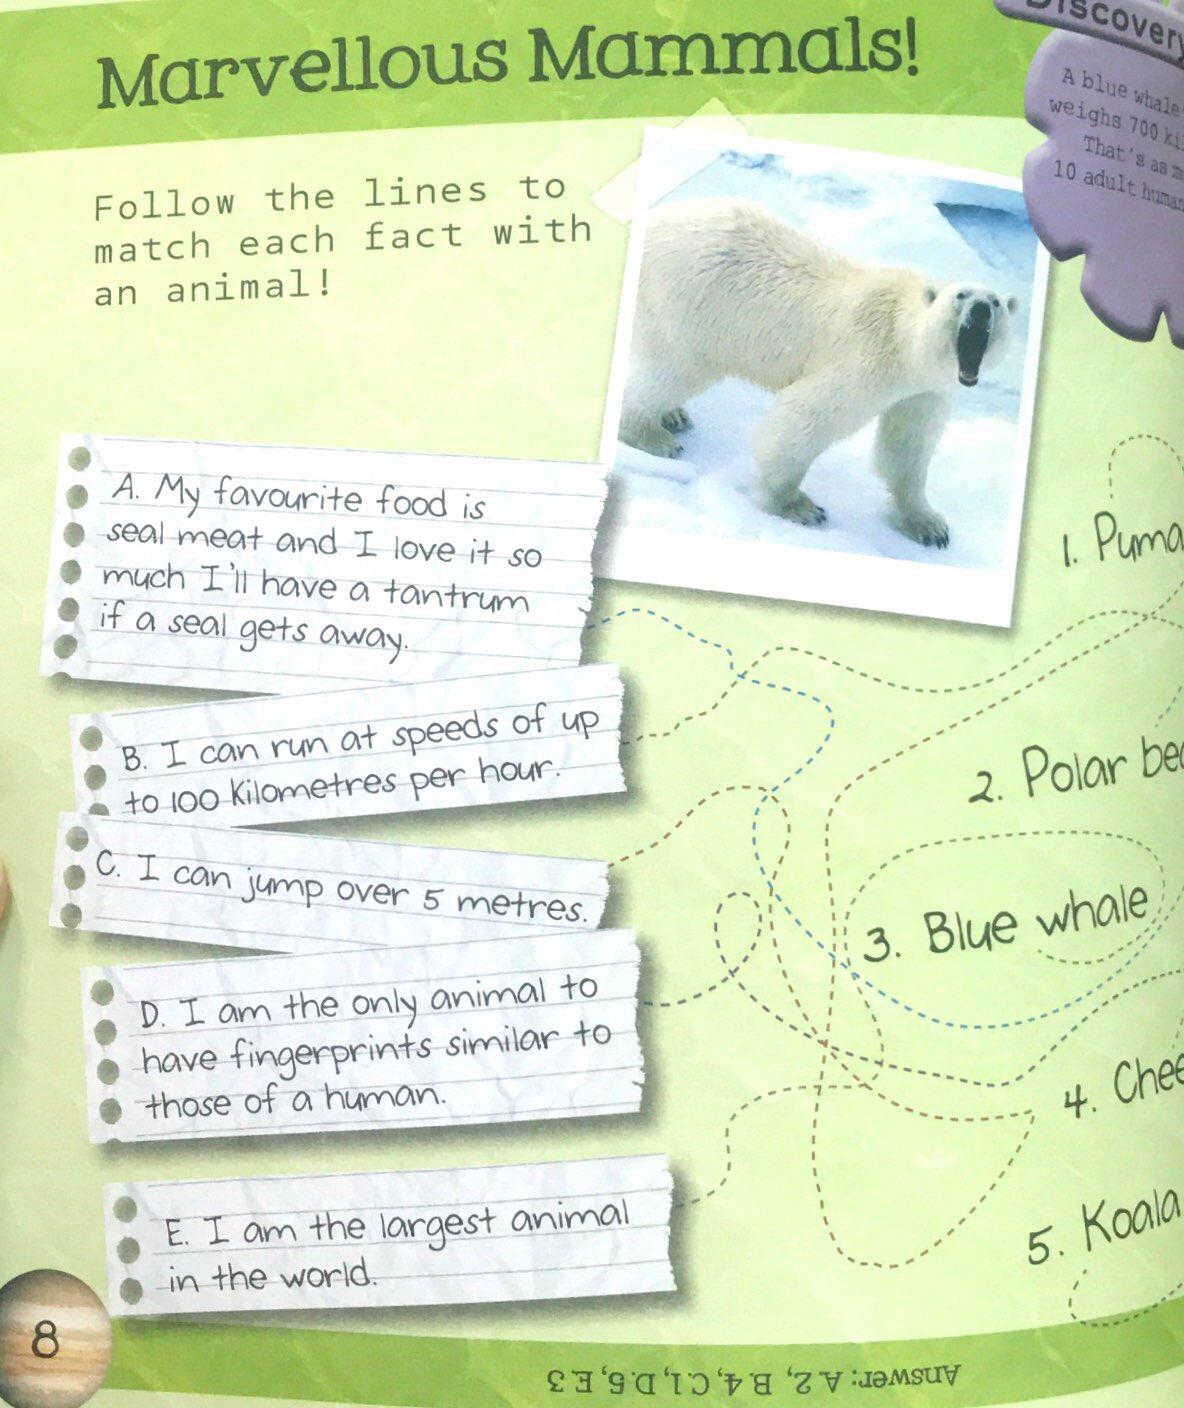 Marvellous Mammals!
Discovery
A blue whale
weighs 700
That's as
10 adult
Follow the lines to
match each fact with
an animal!
A. My favourite food is
seal meat and I love it so
much I'll have a tantrum
if a seal gets away.
B. I can run at speeds of up
to 100 Kilometres per hour.
C. I can jump over 5 metres.
D. I am the only animal to
have fingerprints similar to
those of a human.
E. I am the largest animal
in the world.
1. Puma
2. Polar
3. Blue whale
4.
5. Koala
8
Answer: A.2, B.4, C.1, D.5, E.3